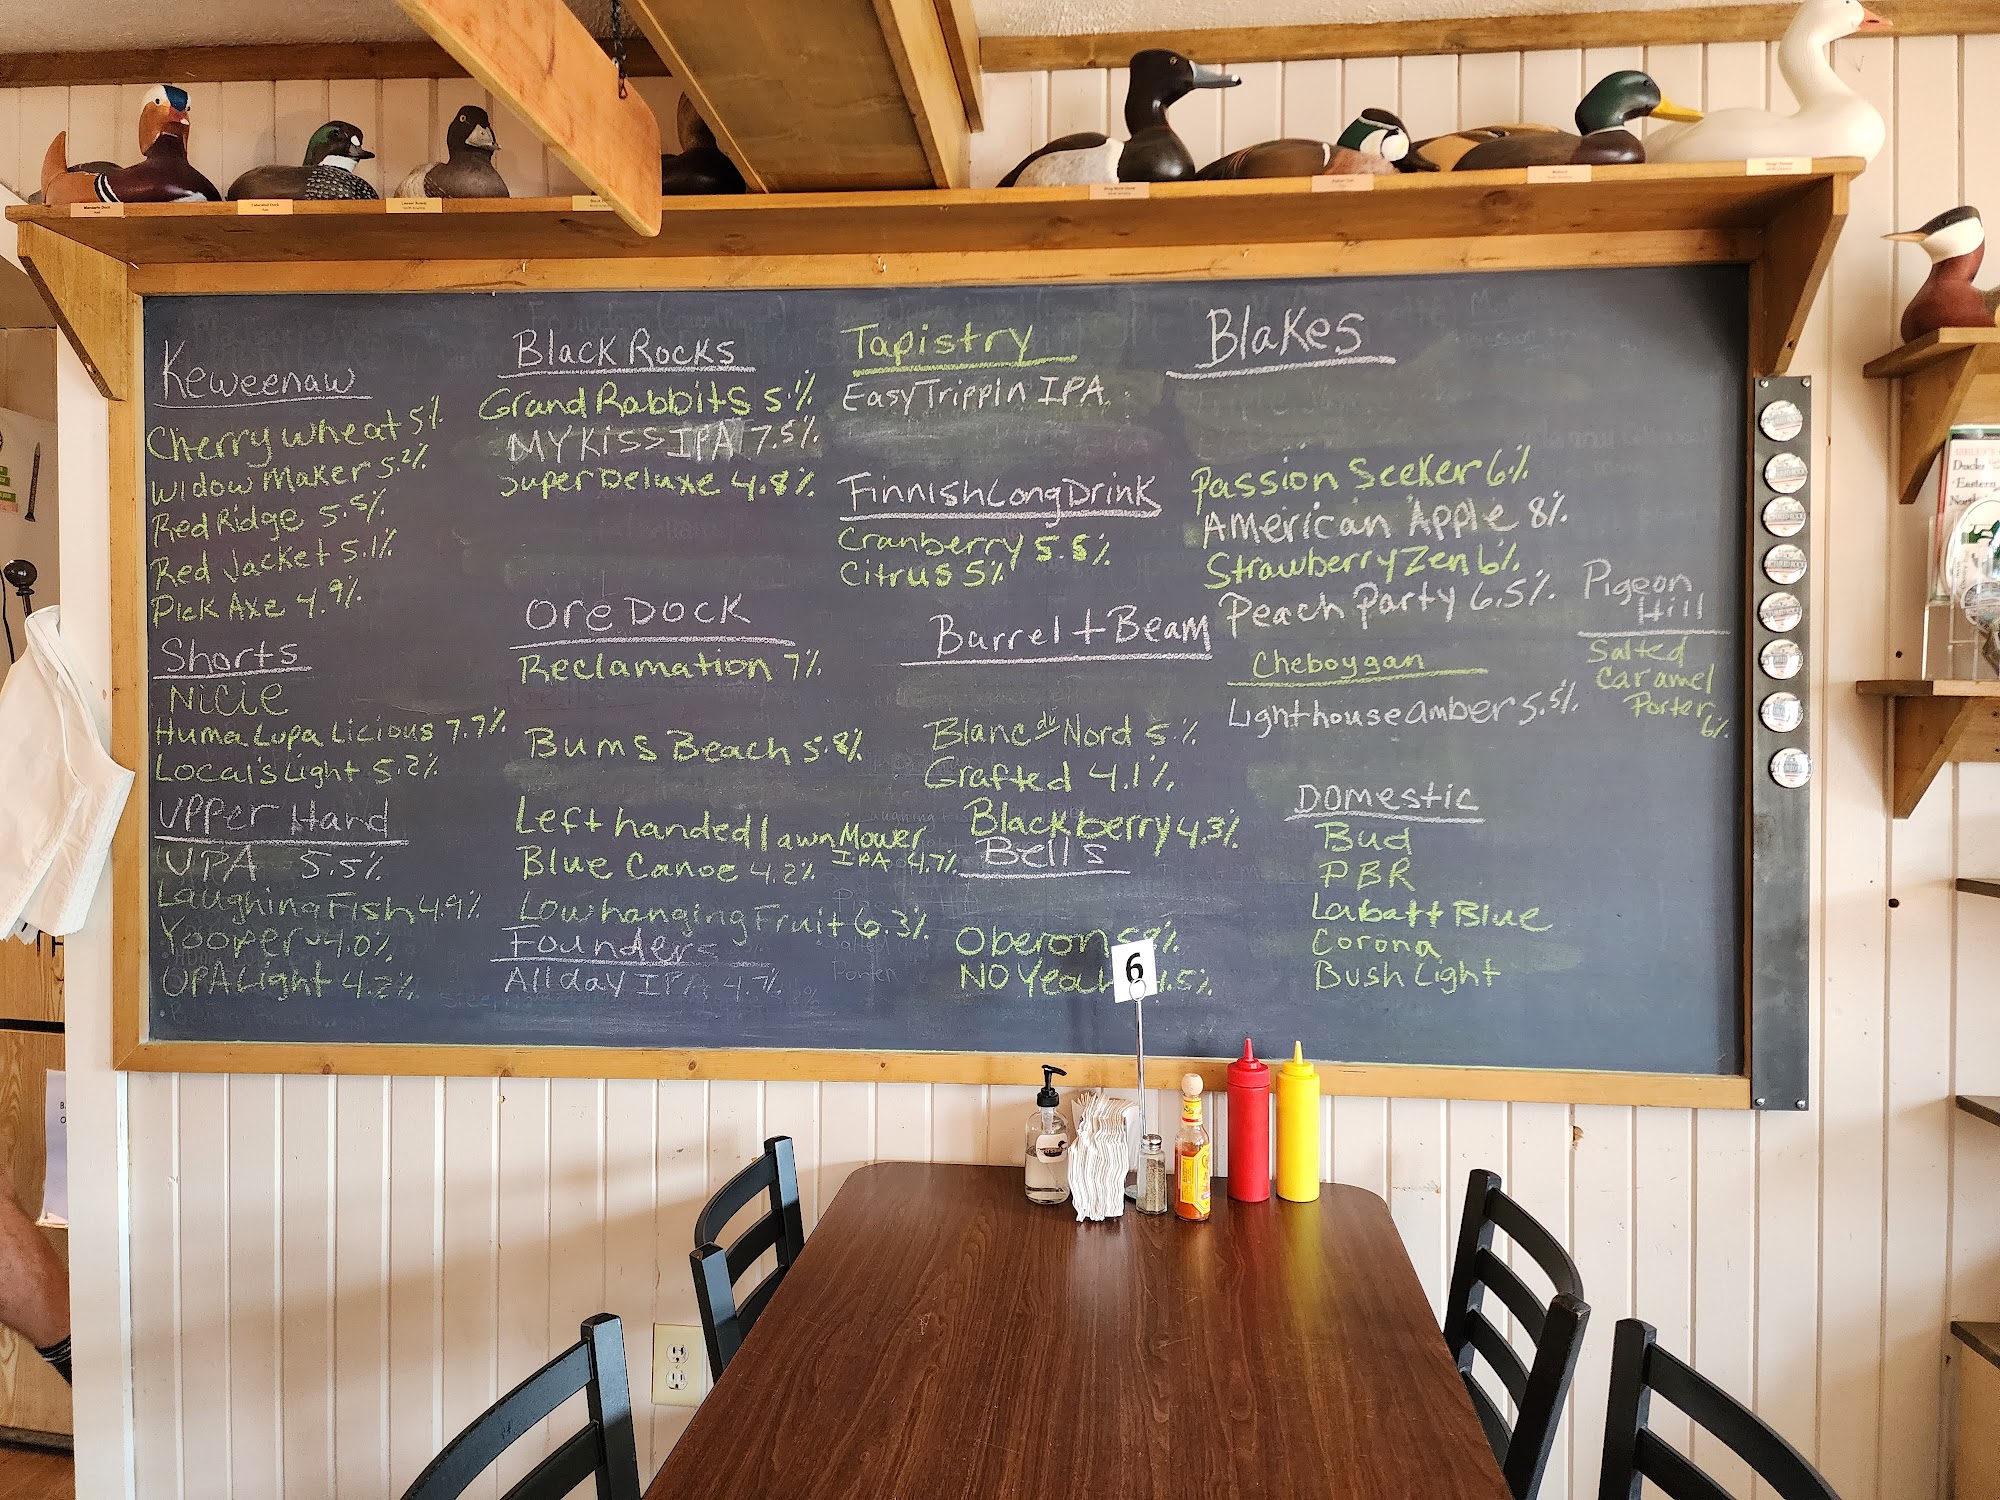 Keweenaw
Cherry Wheat 5%
Widow Maker 5.2%
Red Ridge 5.5%
Red Jacket 5.1%
Pick Axe 4.9%
Shorts
Nicie
Huma Lupa Licious 7.7%
Local's Light 5.2%
Upper Hand
UPA 5.5%
Laughing Fish 4.9%
Yooper 4.0%
OPA Light 4.2%
Black Rocks
Grand Rabbits 5%
MY Kiss IPA 7.5%
Super Deluxe 4.8%
Ore Dock
Reclamation 7%
Bums Beach 5.8%
Left handed lawn Mower
IPA 4.7%
Blue Canoe 4.2%
Low hanging Fruit 6.3%
Founders
All day IPA 4.7%
Tapistry
Easy Trippin IPA
Finnish Long Drink
Cranberry 5.5%
Citrus 5%
Barrel + Beam
Blanc du Nord 5%
Grafted 4.1%
Blackberry 4.3%
Bells
Oberon
NO Yeah
6
Blakes
Passion Seeker 6%
American Apple 8%
Strawberry Zen 6%
Peach Party 6.5%
Cheboygan
Lighthouse amber 5.5%
Domestic
Bud
PBR
Labatt Blue
Corona
Bush Light
Pigeon
Hill
Salted
Caramel
Porter
6%